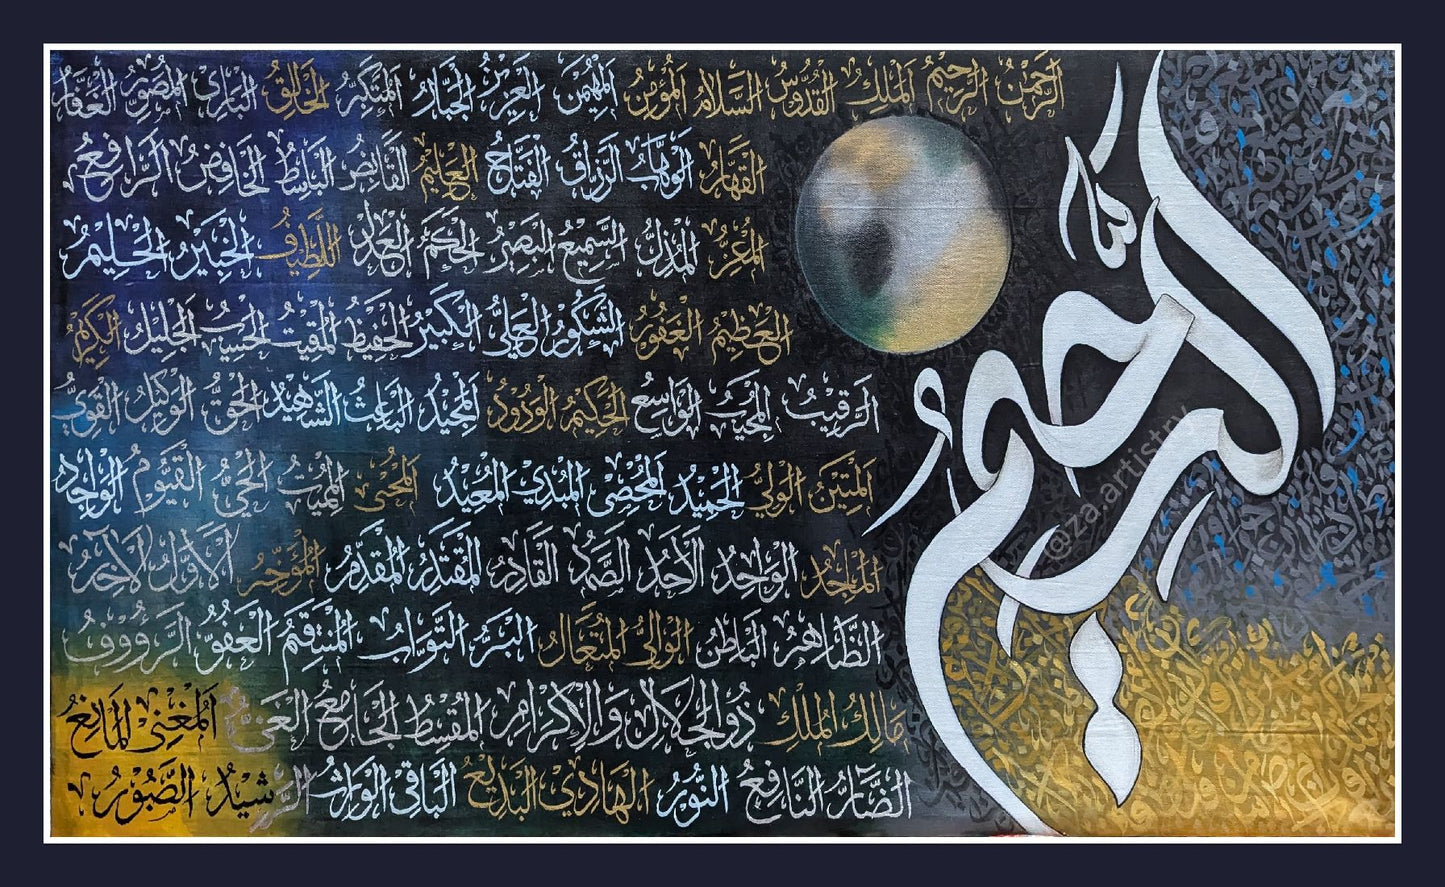 الرَّحْمٰنُ الرَّحِيْمُ اَلْمَلِكُ القُدُّوسُ السَّلَامُ اَلْمُؤْمِنُ اَلْمُهَيْمِنُ العَزِيْزُ الجَبَّارُ اَلْمُتَكَبِّرُ الخَالِقُ البَارِئُ المُصَوِّرُ الغَفَّارُ
القَهَّارُ الوَهَّابُ الرَّزَّاقُ الفَتَّاحُ العَلِيْمُ القَابِضُ البَاسِطُ الخَافِضُ الرَّافِعُ
المُعِزُّ المُذِلُّ السَّمِيْعُ البَصِيْرُ الحَكَمُ العَدْلُ اللَّطِيْفُ الخَبِيْرُ الحَلِيْمُ
العَظِيْمُ الغَفُوْرُ الشَّكُوْرُ العَلِيُّ الكَبِيْرُ الحَفِيْظُ المُقِيْتُ الحَسِيْبُ الجَلِيْلُ الكَرِيْمُ
الرَّقِيْبُ المُجِيْبُ الوَاسِعُ الحَكِيْمُ الوَدُوْدُ المَجِيْدُ البَاعِثُ الشَّهِيْدُ الحَقُّ الوَكِيْلُ القَوِيُّ
المَتِيْنُ الوَلِيُّ الحَمِيْدُ المُحْصِى المُبْدِئُ المُعِيْدُ اَلْمُحْىِ المُمِيْتُ الحَيُّ القَيُّوْمُ الوَاجِدُ
المَاجِدُ الوَاحِدُ الاَحَدُ الصَّمَدُ القَادِرُ المُقْتَدِرُ المُقَدِّمُ المُؤَخِّرُ الاَوَّلُ الاٰخِرُ
الظَّاهِرُ البَاطِنُ الوَالِيُّ المُتَعَالُ البَرُّ التَّوَابُ المُنْتَقِمُ العَفُوُّ الرَّؤُوْفُ
مَالِكُ المُلْكِ ذُوالجَلَالِ وَالاِكْرَامِ المُقْسِطُ الجَامِعُ الغَنِيُّ اَلْمُغْنِى المَانِعُ
الضَّارُّ النَّافِعُ النُّوْرُ الهَادِيْ البَدِيْعُ البَاقِى الوَارِثُ الرَّشِيْدُ الصَّبُوْرُ
الرحيم
@za.artistry